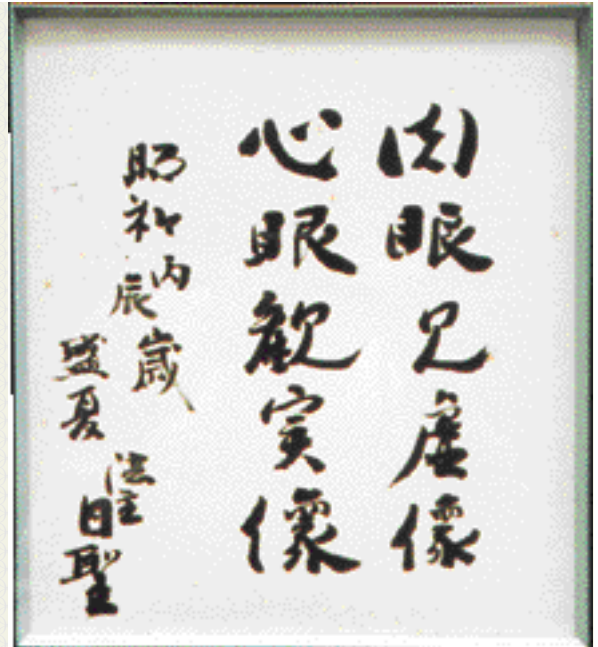 肉眼見虚像
心眼観実像
昭和丙辰歳
盛夏
法主
日聖